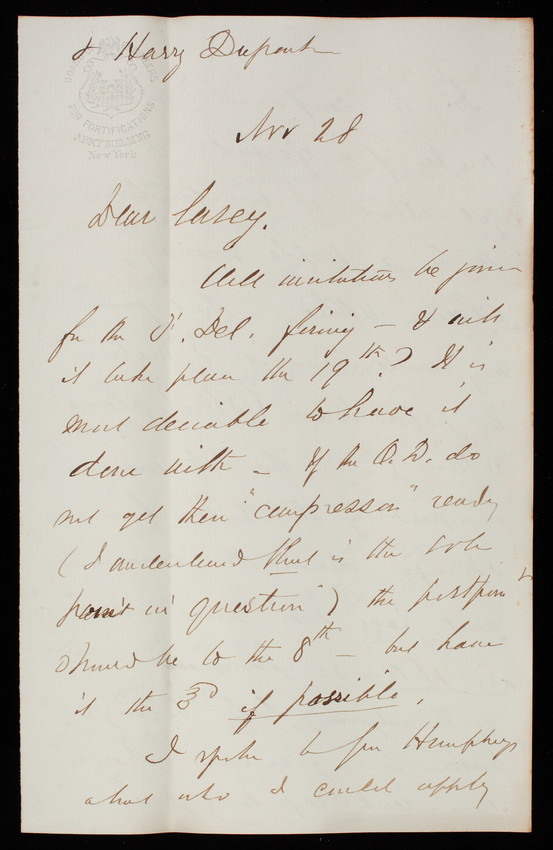 & Harry Dupont
FOR FORTIFICATIONS
ARMY BUILDING
New York
Nov 28
Dear Casey.
Will invitations be given
for the Ft. Del. firing – & will
it take place the 19th? It is
most desirable to have it
done with – If the O.D. do
not get their "compressors" ready
(I understand that is the sole
point in question") the postpont
should be to the 8th – but have
it the 3d if possible.
I spoke to Gen Humphreys
about who I could apply